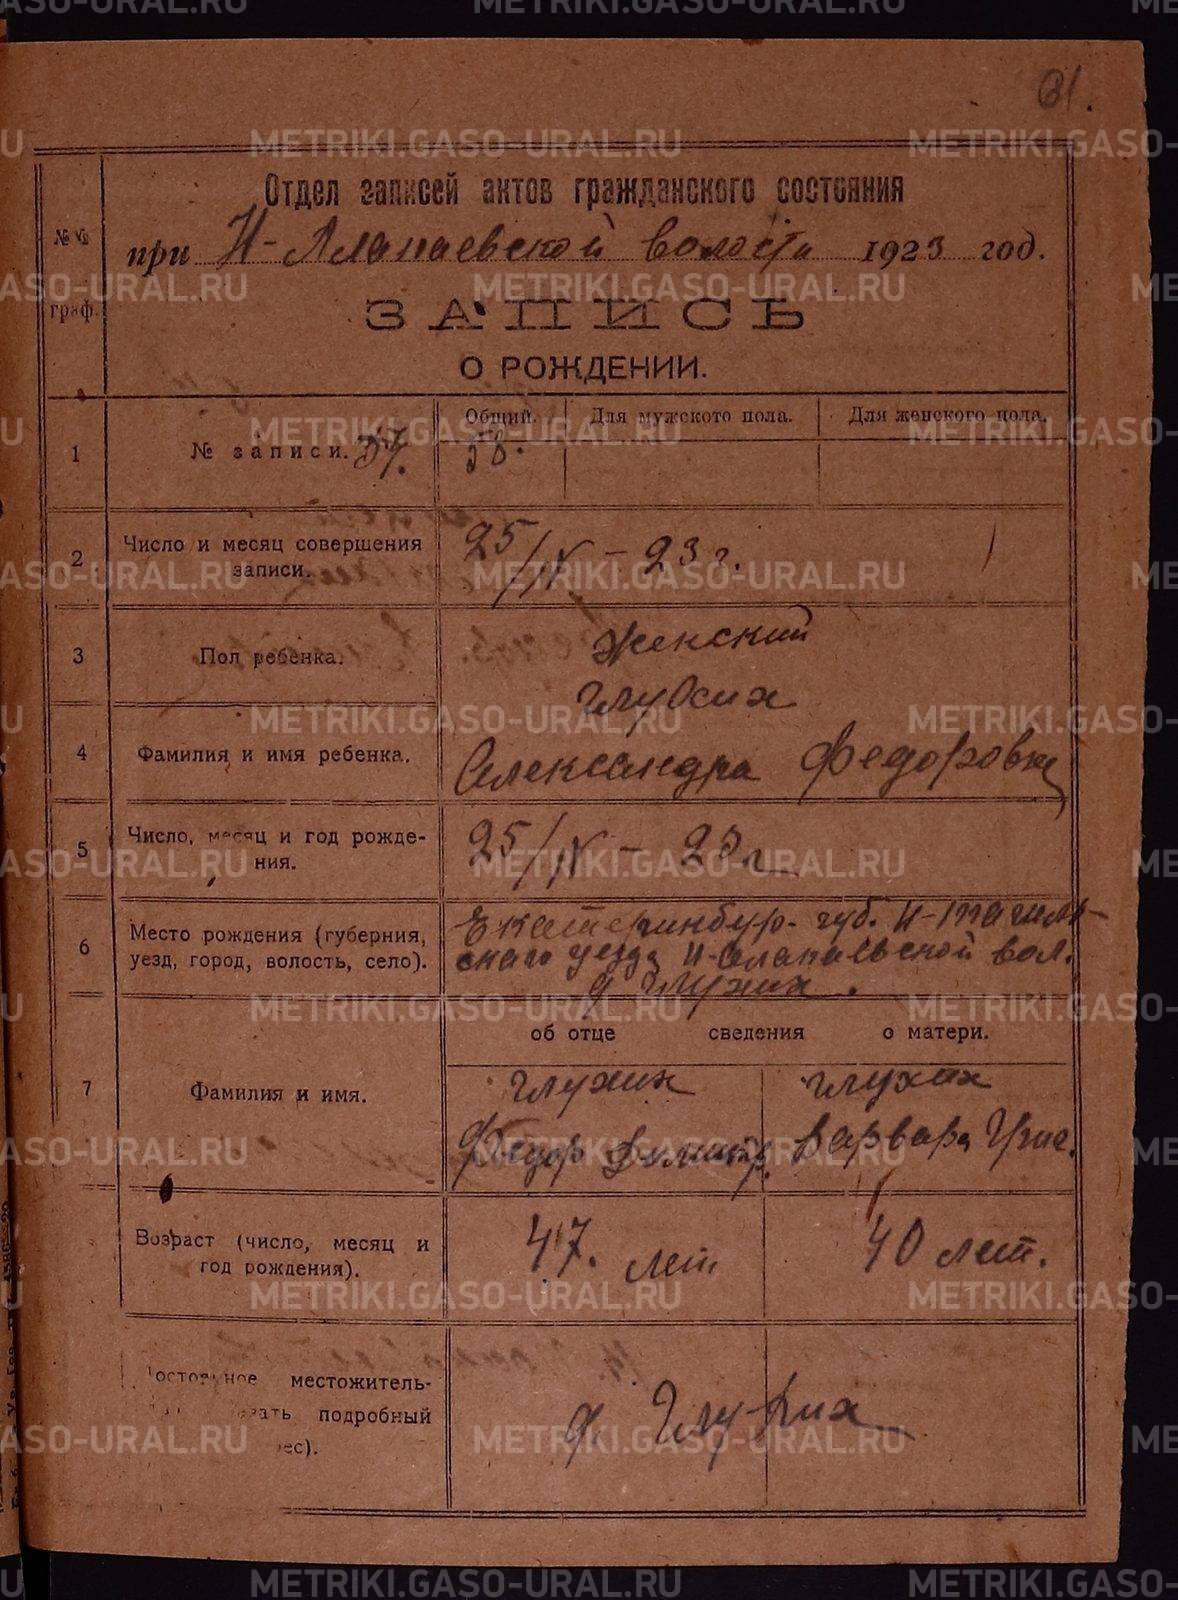 61.
Отдел записей актов гражданского состояния
№№ граф.
при Н-Алапаевской волости 1923 год.
ЗАПИСЬ
О РОЖДЕНИИ.
Общий. Для мужского пола. Для женского пола.
1 № записи. 57. 58.
2 Число и месяц совершения записи. 25/IV - 23 г.
3 Пол ребенка. Женский
Глухих
4 Фамилия и имя ребенка. Александра Федоровна
5 Число, месяц и год рождения. 25/IV - 23 г
6 Место рождения (губерния, уезд, город, волость, село).
Екатеринбур. губ. Н-Тагиль-
скаго уезда Н-Алапаевской вол.
д Глухих.
об отце сведения о матери.
7 Фамилия и имя.
Глухих Глухих
Федор Димитр. Варвара Григ.
Возраст (число, месяц и год рождения). 47. лет 40 лет.
местожитель-
подробный
д. Глухих
METRIKI.GASO-URAL.RU